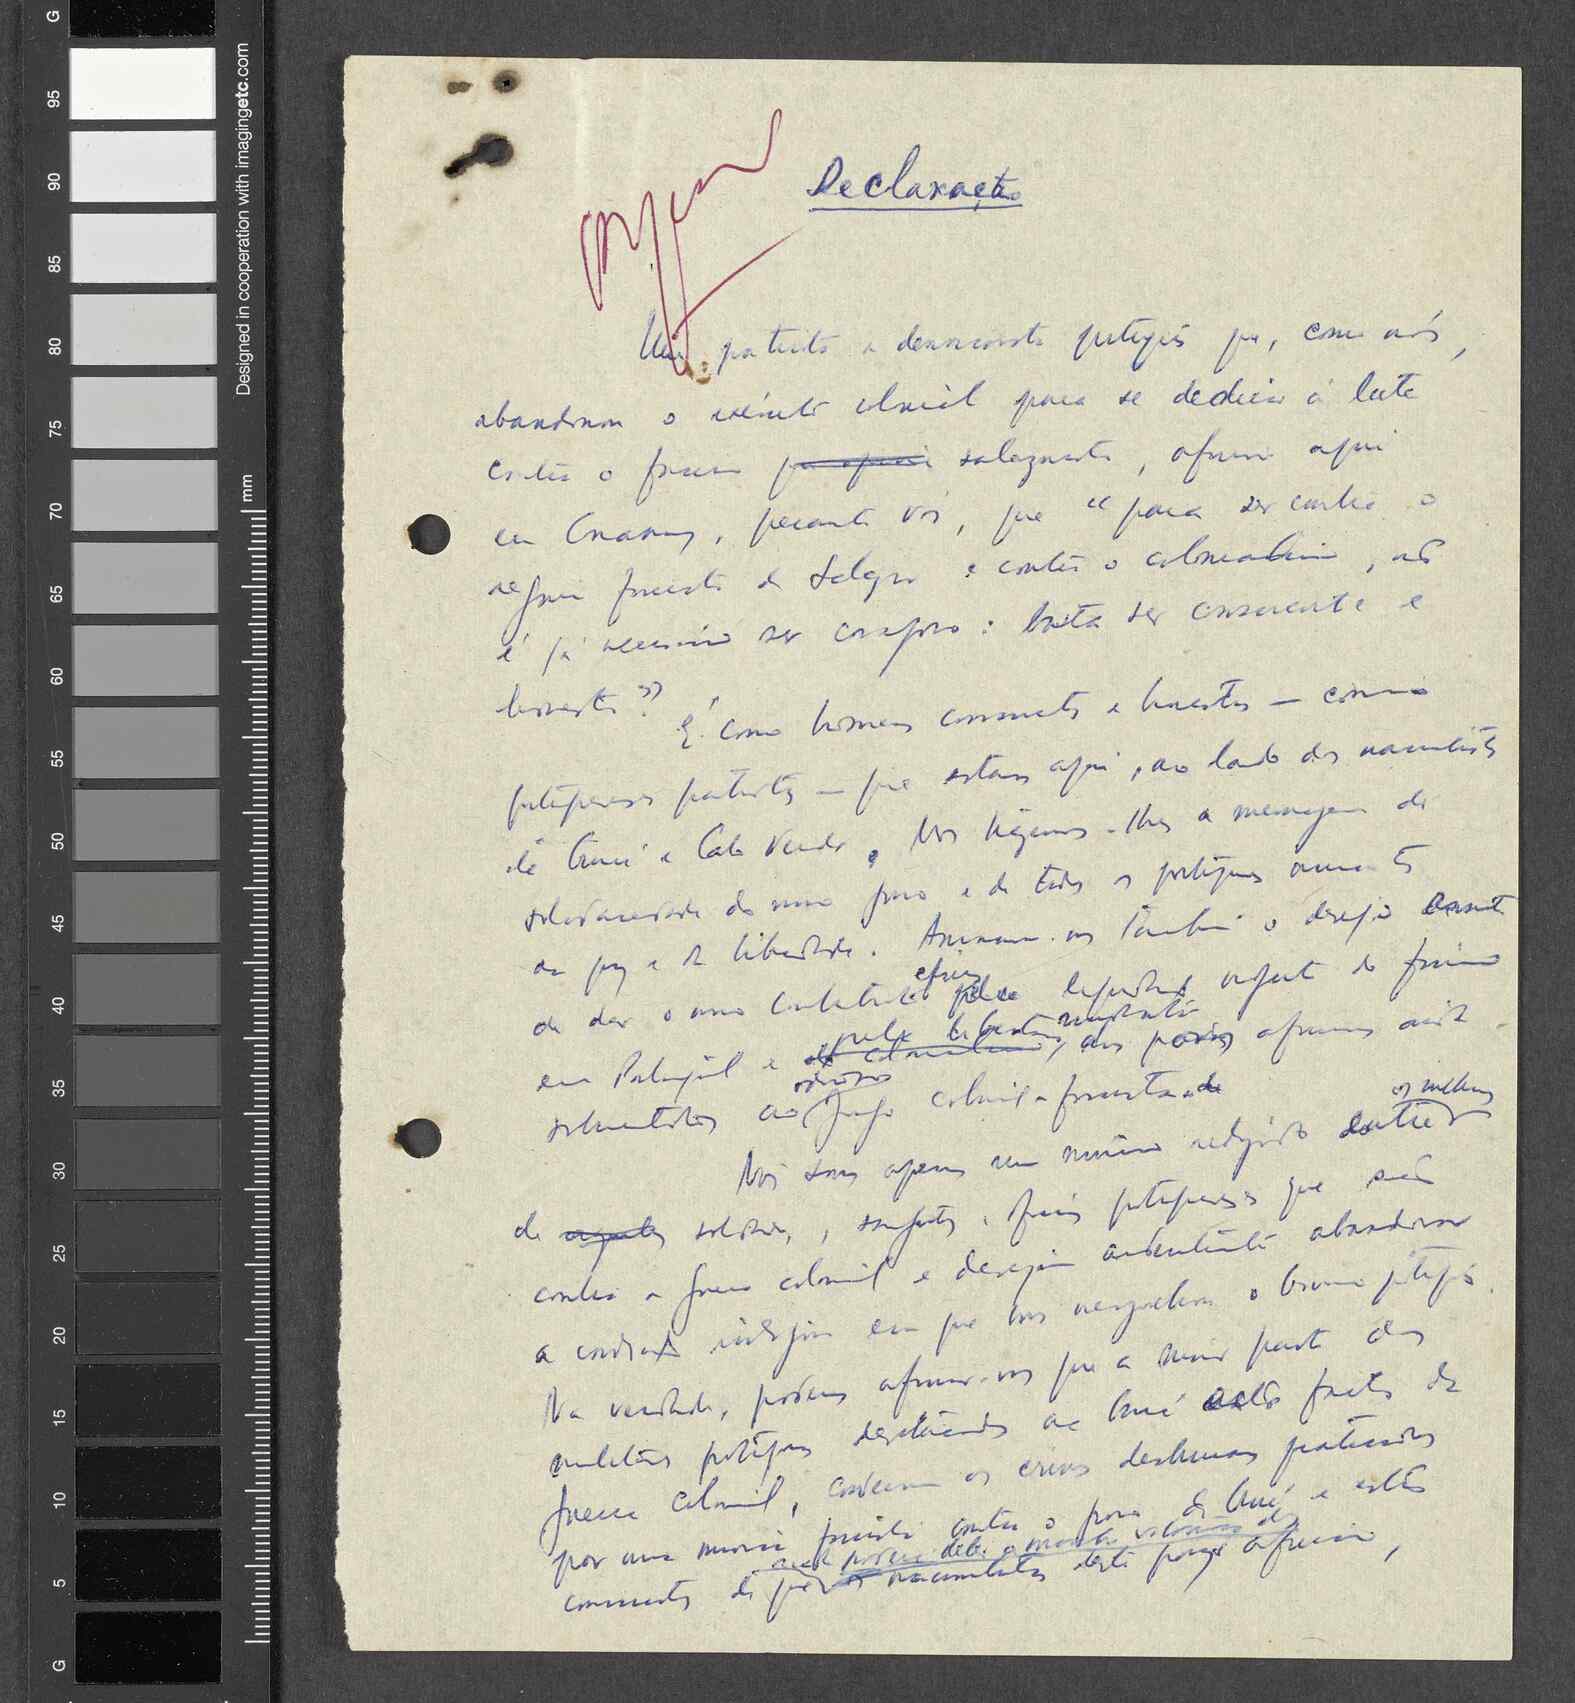 Declaração
Um patriota e democrata português que, como nós,
abandonou o exército colonial para se dedicar à luta
contra o fascismo salazarista, afirmou aqui
em Conakry, perante vós, que "para ser contra o
regime fascista de Salazar e contra o colonialismo, não
é já necessário ser corajoso: basta ser consciente e
honesto".
É como homens conscientes e honestos — como
portugueses patriotas — que estamos aqui, ao lado dos nacionalistas
da Guiné e Cabo Verde. Nós trazemos-lhes a mensagem de
solidariedade do nosso povo e de todos os portugueses amantes
da paz e da liberdade. Anima-nos também o desejo
de dar o nosso contributo eficaz pela liquidação urgente do fascismo
em Portugal e pela libertação dos povos africanos ainda
submetidos ao odioso jugo colonial-fascista.
Nós somos apenas um número reduzido entre os milhares
de soldados, sargentos e oficiais portugueses que são
contra a guerra colonial e desejam ardentemente abandonar
a condição indigna em que nos mergulhou o governo português.
Na verdade, podemos afirmar-vos que a maior parte dos
militares portugueses destacados na Guiné estão fartos da
guerra colonial, condenam os crimes desumanos praticados
por uma minoria fascista contra o povo da Guiné e estão
conscientes de que nada poderá deter a marcha vitoriosa dos
nacionalistas deste povo africano,